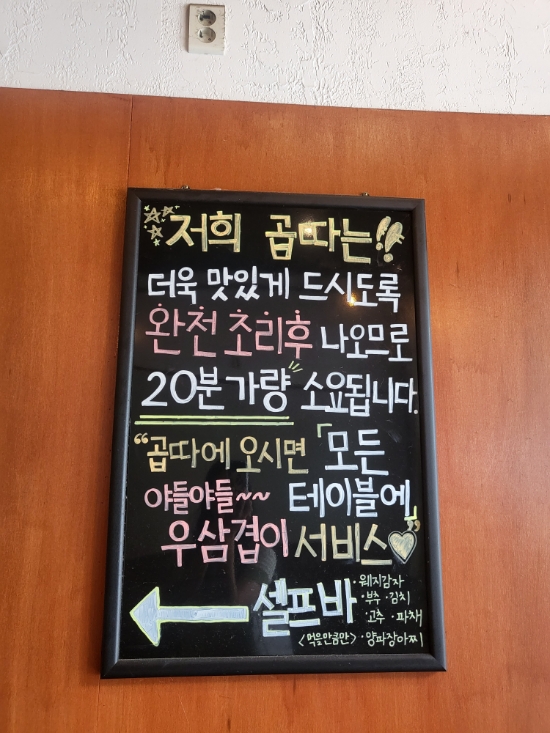 저희 곱따는!!
더욱 맛있게 드시도록
완전초리후 나오므로
20분가량 소요됩니다.
"곱따에 오시면 「모든
야들야들~~ 테이블에」
우삼겹이 서비스♡"
← 셀프바
· 웨지감자
· 부추 · 김치
· 고추 · 파채
<먹을만큼만> · 양파장아찌